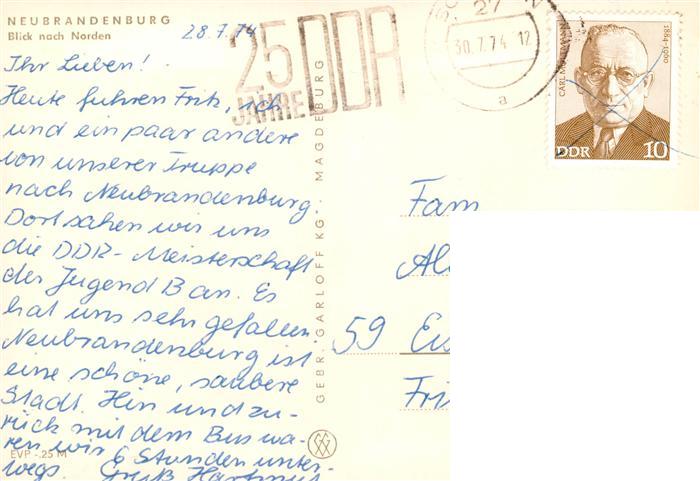 NEUBRANDENBURG
Blick nach Norden
28.7.74
Ihr Lieben!
Heute fuhren Fritz, ich
und ein paar andere
von unserer Truppe
nach Neubrandenburg.
Dort sahen wir uns
die DDR-Meisterschaft
der Jugend B an. Es
hat uns sehr gefallen.
Neubrandenburg ist
eine schöne, saubere
Stadt. Hin und zu-
rück mit dem Bus wa-
ren wir 6 Stunden unter-
wegs. Gruß Hartmut
EVP -.25 M
25
JAHRE DDR
27
30.7.74 12
a
CARL MOLTMANN
1884-1960
DDR 10
GEBR. GARLOFF KG · MAGDEBURG
Fam
Al
59 Eis
Fri